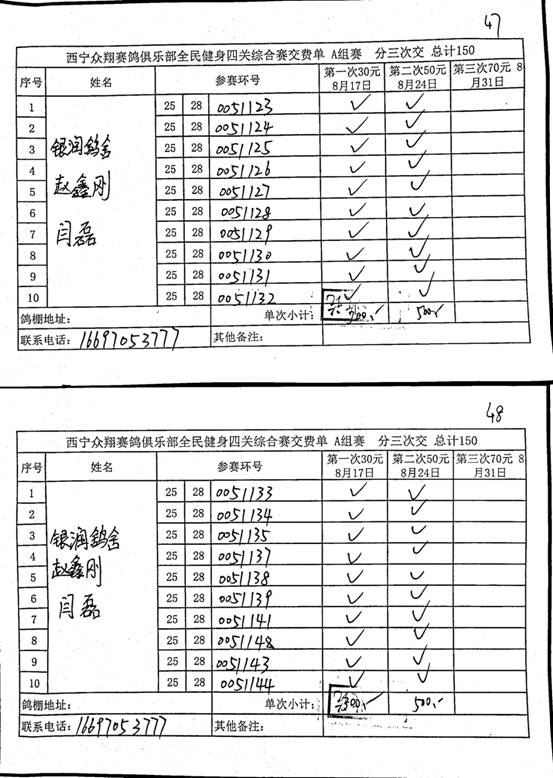 47
西宁众翔赛鸽俱乐部全民健身四关综合赛交费单 A组赛 分三次交 总计150
序号 姓名 参赛环号 第一次30元 8月17日 第二次50元 8月24日 第三次70元 8月31日
银润鸽舍
赵鑫刚
闫磊
1 25 28 0051123 ✓ ✓
2 25 28 0051124 ✓ ✓
3 25 28 0051125 ✓ ✓
4 25 28 0051126 ✓ ✓
5 25 28 0051127 ✓ ✓
6 25 28 0051128 ✓ ✓
7 25 28 0051129 ✓ ✓
8 25 28 0051130 ✓ ✓
9 25 28 0051131 ✓ ✓
10 25 28 0051132 ✓ ✓
鸽棚地址: 单次小计: 500.-
联系电话: 16697053777 其他备注:
48
西宁众翔赛鸽俱乐部全民健身四关综合赛交费单 A组赛 分三次交 总计150
序号 姓名 参赛环号 第一次30元 8月17日 第二次50元 8月24日 第三次70元 8月31日
银润鸽舍
赵鑫刚
闫磊
1 25 28 0051133 ✓ ✓
2 25 28 0051134 ✓ ✓
3 25 28 0051135 ✓ ✓
4 25 28 0051137 ✓ ✓
5 25 28 0051138 ✓ ✓
6 25 28 0051139 ✓ ✓
7 25 28 0051141 ✓ ✓
8 25 28 0051148 ✓ ✓
9 25 28 0051143 ✓ ✓
10 25 28 0051144 ✓ ✓
鸽棚地址: 单次小计: 500.-
联系电话: 16697053777 其他备注: